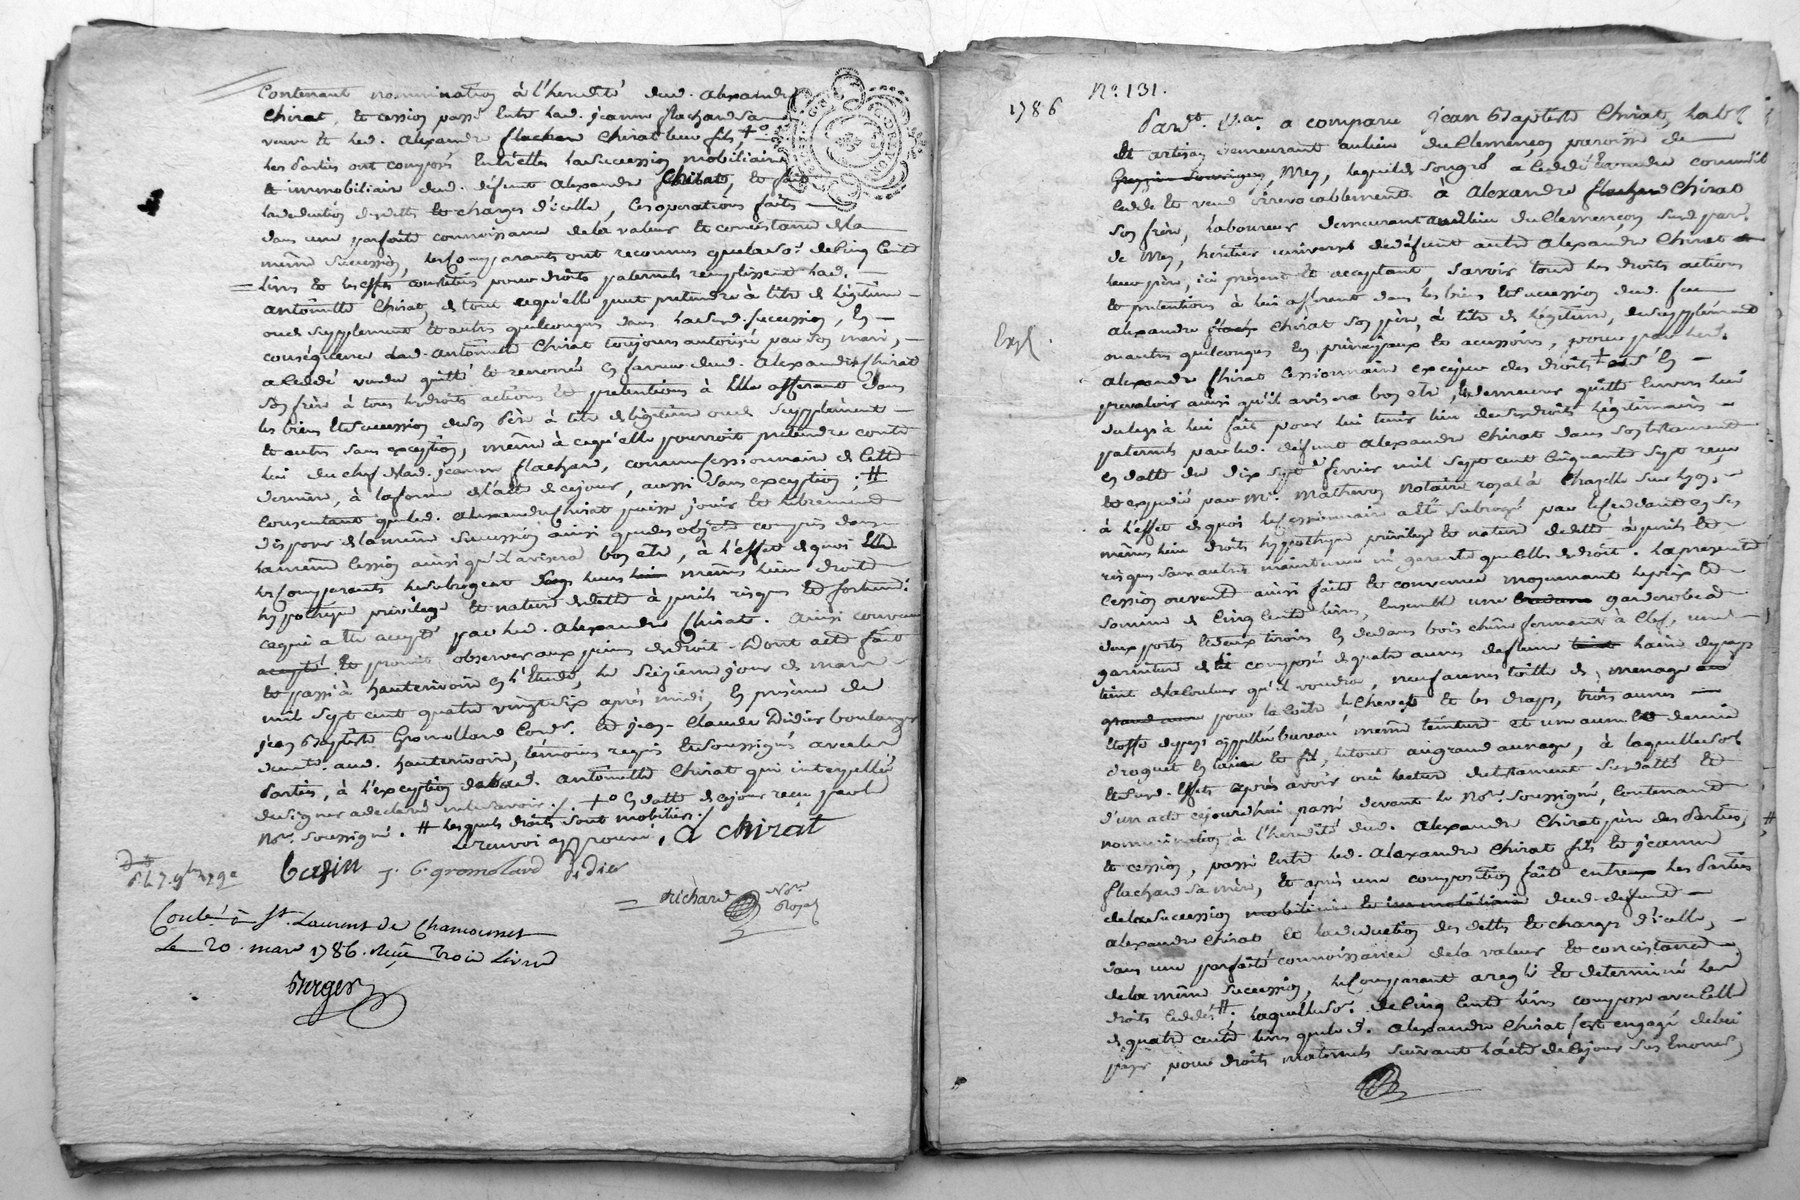 Contenant nomination à l'heredité dud. alexandre
Chirat, et cession passé entre lad. jeanne flachard sa
veuve et led. alexandre flachar Chirat leur fils, +°
les parties ont composé entr'elles la succession mobiliaire
et immobiliaire dud. défunt alexandre Chirat, et fait
la deduction des dettes et charges d'icelle, Ces operations faits
dans une parfaite connoissance de la valeur et concistance de la
même succession, les Comparants ont reconnus que la so. de Cinq Cents
livres et les effets constitués pour droits paternels remplissent lad.
antoinette Chirat, de tout ce qu'elle peut pretendre à titre de légitime
ou de supplement et autres quelconques dans la susd. succession, En
conséquence lad. antoinette Chirat toujours autorisée par son mari,
a Ceddé vendu quitté et renoncé en faveur dud. alexandre Chirat
son frère à tous les droits actions et pretentions à elle afferant dans
les biens et succession de son père à titre de légitime ou de supplement
et autres sans exception, même à ce qu'elle pourroit pretendre contre
lui du chef de lad. jeanne flachard, comme cessionnaire de cette
derniere, à la forme de l'acte de ce jour, aussi sans exception; #
Consentant que led. alexandre Chirat puisse jouir et librement
disposer de la même succession ainsi que des objets compris dans
la même Cession ainsi qu'il avisera bon etre, à l'effet de quoi
les Comparants le subrogent dans leurs même lieu droits
hypotheque privilege et nature de dette à perils risques et fortune.
ce qui a été accepté par led. alexandre Chirat. ainsi convenu
accepté et promis observer aux peines de droit. Dont acte fait
et passé à hauterivoire en l'Etude, le seizieme jour de mars
mil sept cent quatre vingt six après midi, En présence de
jean Baptiste Gromollard Cord. et jean Claude Didier boulanger
demt. aud. hauterivoire, témoins requis et soussignés avec les
Parties, à l'exception de lad. antoinette Chirat qui interpellée
de signer a declaré ne le savoir. +° En datte de ce jour reçu par le
Nore. soussigné. # lesquels droits sont mobiliers.
Le renvoi approuvé, a chirat
j. b. gromolard didier
Richard Nore Royal
Conlé. à St. Laurent de Chamousset
Le 20. mars 1786. Reçu Trois Livres
Berger
1786
No. 131.
Pardt. a comparu jean Baptiste Chirat,
et artisan demeurant au lieu du Clemençon paroisse de
Mey, lequel de son gré a Ceddé
cedde et vend irrevocablement a alexandre flachard Chirat
son frère, laboureur demeurant au dit lieu du Clemençon susd. par.
de Mey, héritier universel de défunt autre alexandre Chirat
leur père, ici présent et acceptant savoir tous les droits actions
et pretentions à lui afferant dans les biens et succession dud. feu
alexandre flach Chirat son père, à titre de légitime, de supplement
ou autres quelconques En principaux et accessoires, pour par led.
alexandre Chirat cessionnaire exciper des droits + En
prevaloir ainsi qu'il avisera bon etre, et demeurer quitte Envers lui
du legs à lui fait pour lui tenir lieu de ses droits légitimaires
paternels par led. défunt alexandre Chirat dans son testament
en datte du dix sept fevrier mil sept cent cinquante sept reçu
et expedié par Me. Matheron Notaire royal à Chazelle sur lyon,
à l'effet de quoi le cessionnaire a été subrogé par le cedant en ses
mêmes lieu droits hypotheque privilege et nature de dette à perils et
risques sans autre maintenue ni garantie que celle de droit. La presente
Cession ou vente ainsi faite et convenue moyennant le prix et
somme de Cinq Cents livres, Ensemble une garderobe a
deux portes et deux tiroirs en dedans bois chêne fermant à clef, une
garniture de lit composé de quatre aunes de laine de pays
teint de la couleur qu'il voudra, neuf aunes toille de menage
pour la Coitre le Chevet et les draps, trois aunes
Etoffe de pays appellée bureau même teinture et une aune et demie
droguet en laine et fil, le tout au grand aunage, à laquelle so.
et susd. effets après avoir oui lecture du testament susdatté et
d'un acte cejourd'hui passé devant le Nore. soussigné, Contenant
nomination à l'heredité dud. alexandre Chirat père des parties,
et cession, passé entre led. alexandre Chirat fils et jeanne
flachard sa mère, et après une composition faite entreux les parties
de la succession mobiliaire et immobiliaire dud. défunt
alexandre Chirat et la deduction des dettes et charges d'icelle,
dans une parfaite connoissance de la valeur et concistance
de la même succession, le Comparant a reglé et determiné les
droits ceddés #; laquelle so. de Cinq Cents livres compose avec celle
de quatre cents livres que led. alexandre Chirat s'est engagé de lui
payer pour droits maternels suivant l'acte de ce jour sus Enoncé